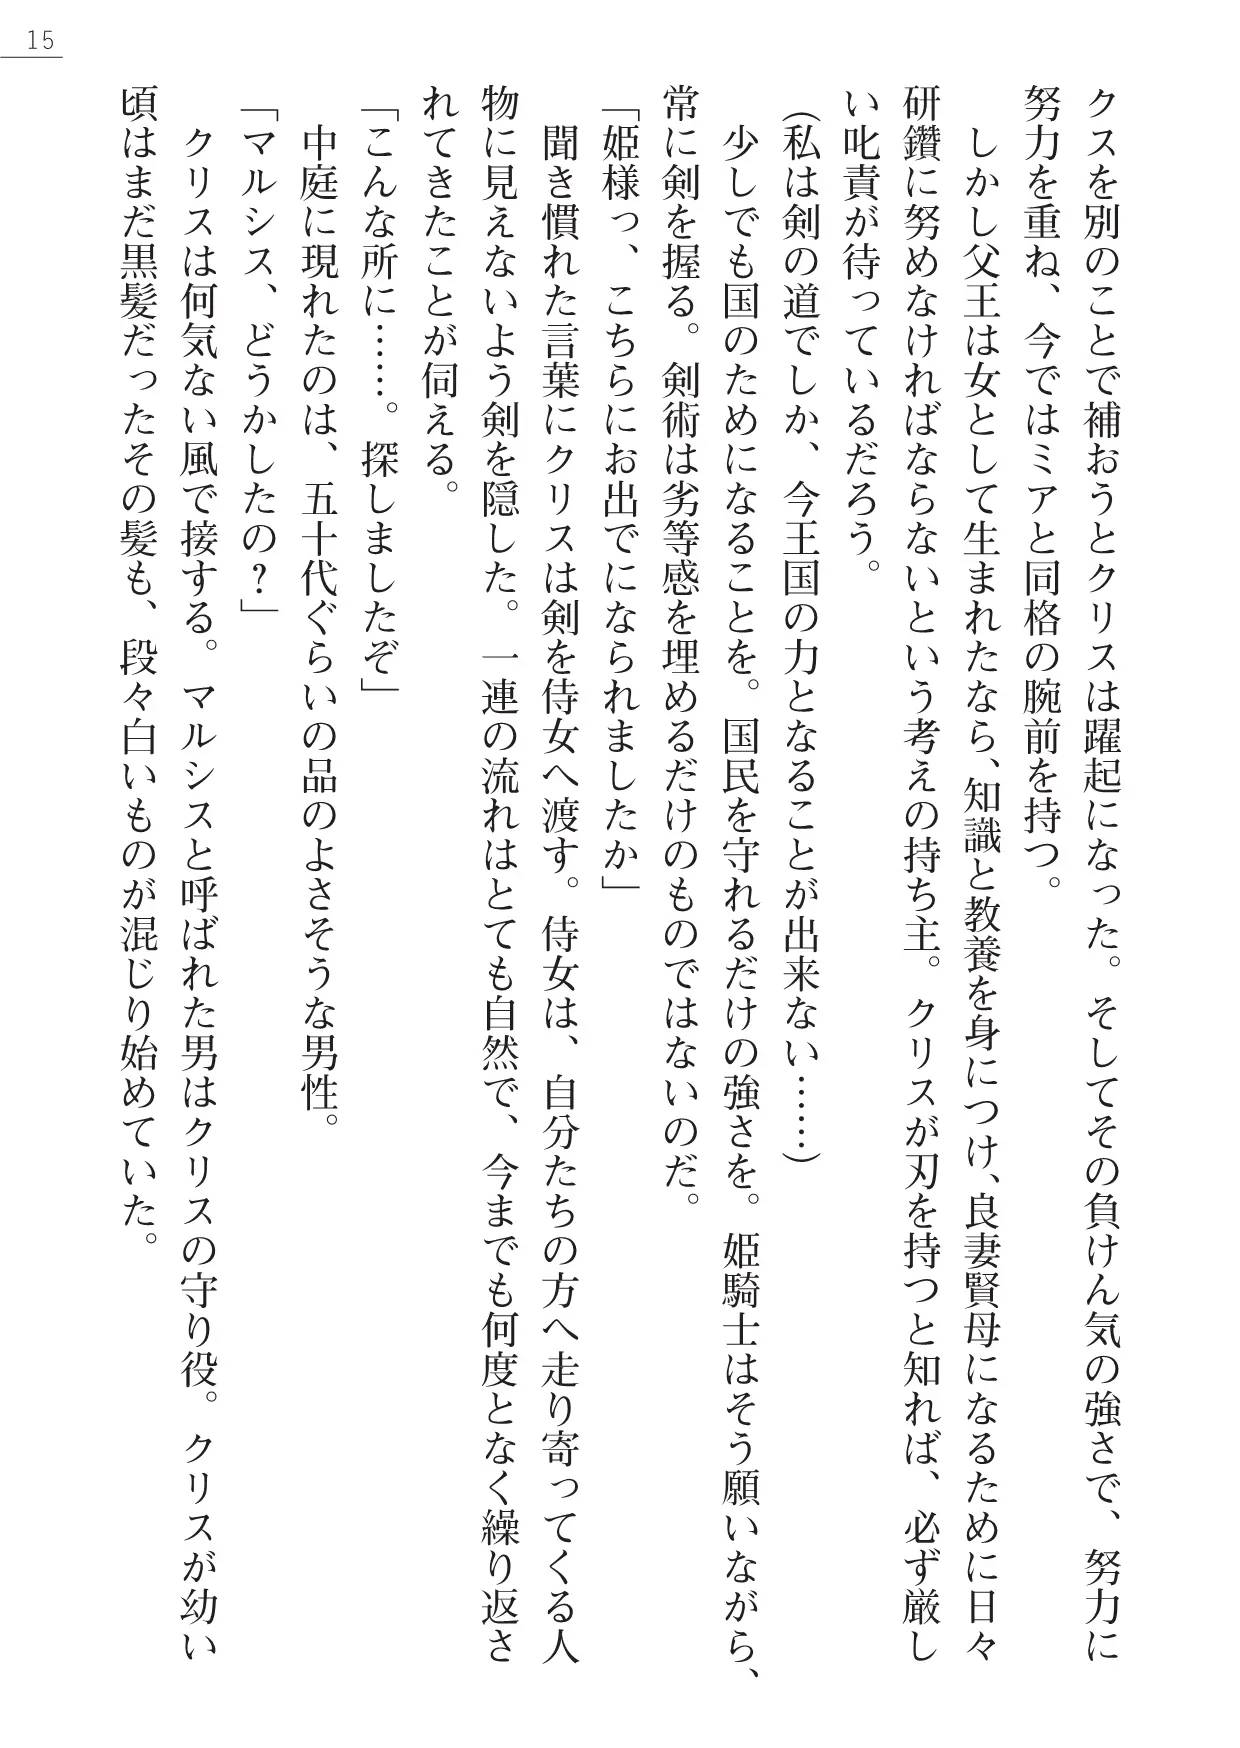 15
クスを別のことで補おうとクリスは躍起になった。そしてその負けん気の強さで、努力に
努力を重ね、今ではミアと同格の腕前を持つ。
しかし父王は女として生まれたなら、知識と教養を身につけ、良妻賢母になるために日々
研鑽に努めなければならないという考えの持ち主。クリスが刃を持つと知れば、必ず厳し
い叱責が待っているだろう。
(私は剣の道でしか、今王国の力となることが出来ない……)
少しでも国のためになることを。国民を守れるだけの強さを。姫騎士はそう願いながら、
常に剣を握る。剣術は劣等感を埋めるだけのものではないのだ。
「姫様っ、こちらにお出でになられましたか」
聞き慣れた言葉にクリスは剣を侍女へ渡す。侍女は、自分たちの方へ走り寄ってくる人
物に見えないよう剣を隠した。一連の流れはとても自然で、今までも何度となく繰り返さ
れてきたことが伺える。
「こんな所に……。探しましたぞ」
中庭に現れたのは、五十代ぐらいの品のよさそうな男性。
「マルシス、どうかしたの?」
クリスは何気ない風で接する。マルシスと呼ばれた男はクリスの守り役。クリスが幼い
頃はまだ黒髪だったその髪も、段々白いものが混じり始めていた。